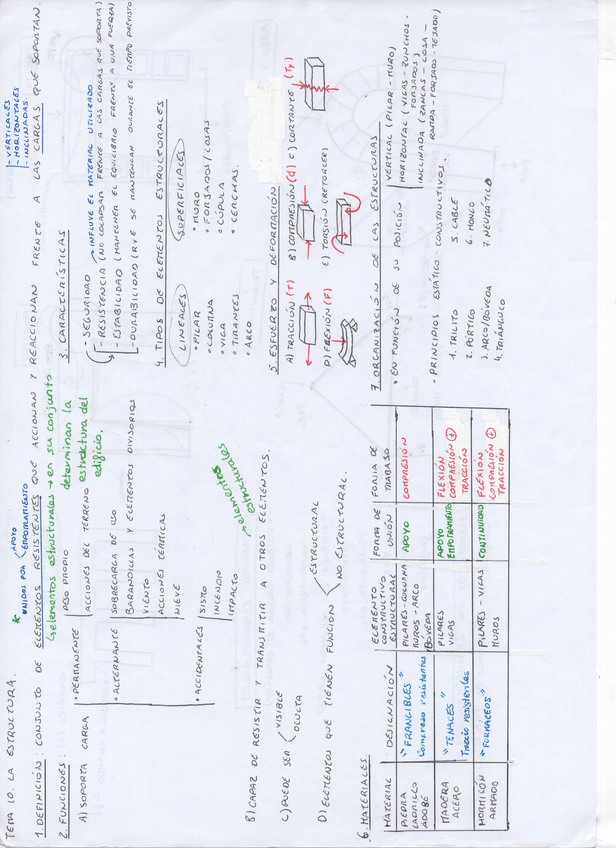 TEMA 10. LA ESTRUCTURA.
* UNIDOS POR APOYO
EMPOTRAMIENTO
- VERTICALES
- HORIZONTALES
- INCLINADAS.
1. DEFINICIÓN: CONJUNTO DE ELEMENTOS RESISTENTES QUE ACCIONAN Y REACCIONAN FRENTE A LAS CARGAS QUE SOPORTAN.
elementos estructurales → en su conjunto determinan la estructura del edificio.
2. FUNCIONES:
A) SOPORTA CARGA
• PERMANENTE
PESO PROPIO
ACCIONES DEL TERRENO
• ALTERNANTE
SOBRECARGA DE USO
BARANDILLAS Y ELEMENTOS DIVISORIOS
VIENTO
ACCIONES TÉRMICAS
NIEVE
• ACCIDENTALES
SISMO
INCENDIO
IMPACTO
B) CAPAZ DE RESISTIR Y TRANSMITIR A OTROS ELEMENTOS.
elementos estructurales
C) PUEDE SER
VISIBLE
OCULTA
D) ELEMENTOS QUE TIENEN FUNCIÓN
ESTRUCTURAL
NO ESTRUCTURAL.
3. CARACTERÍSTICAS
- SEGURIDAD
INFLUYE EL MATERIAL UTILIZADO
- RESISTENCIA (NO COLAPSAR FRENTE A LAS CARGAS QUE SOPORTA)
- ESTABILIDAD (MANTENER EL EQUILIBRIO FRENTE A UNA FUERZA)
- DURABILIDAD (R y E SE MANTENGAN DURANTE EL TIEMPO PREVISTO
4. TIPOS DE ELEMENTOS ESTRUCTURALES
LINEALES
• PILAR
• COLUMNA
• VIGA
• TIRANTES
• ARCO
SUPERFICIALES
• MURO
• FORJADOS / LOSAS
• CÚPULA
• CERCHAS.
5. ESFUERZO Y DEFORMACIÓN
A) TRACCIÓN (T)
B) COMPRESIÓN (C)
C) CORTANTE (Ty)
D) FLEXIÓN (F)
E) TORSIÓN (RETORCER)
6. MATERIALES
MATERIAL DESIGNACIÓN ELEMENTO CONSTRUCTIVO ESTRUCTURAL FORMA DE UNIÓN FORMA DE TRABAJO
PIEDRA LADRILLO ADOBE "FRANGIBLES" Compreso resistentes PILARES - COLUMNA MUROS - ARCO BÓVEDA APOYO COMPRESIÓN
MADERA ACERO "TENACES" Tracto resistentes PILARES VIGAS APOYO EMPOTRAMIENTO FLEXIÓN COMPRESIÓN + TRACCIÓN
HORMIGÓN ARMADO "FORMÁCEOS" PILARES - VIGAS MUROS CONTINUIDAD FLEXIÓN COMPRESIÓN + TRACCIÓN
7. ORGANIZACIÓN DE LAS ESTRUCTURAS
• EN FUNCIÓN DE SU POSICIÓN
VERTICAL (PILAR - MURO)
HORIZONTAL (VIGAS - ZUNCHOS - FORJADOS)
INCLINADA (ZANCAS - LOSA - RAMPA - FORJADO - TEJADO)
• PRINCIPIOS ESTÁTICO - CONSTRUCTIVOS.
1. TRILITO
2. PÓRTICO
3. ARCO/BÓVEDA
4. TRIÁNGULO
5. CABLE
6. HONGO
7. NEUMÁTICO